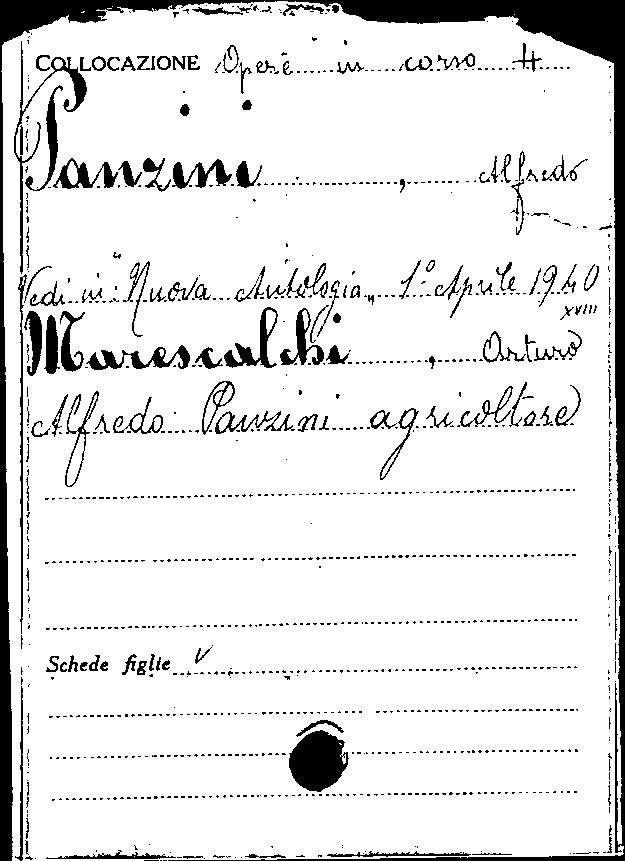 COLLOCAZIONE Opere in corso 4
Panzini, Alfredo
Vedi in: "Nuova Antologia„ 1° Aprile 1940
XVIII
Marescalchi, Arturo
Alfredo Panzini agricoltore
Schede figlie V